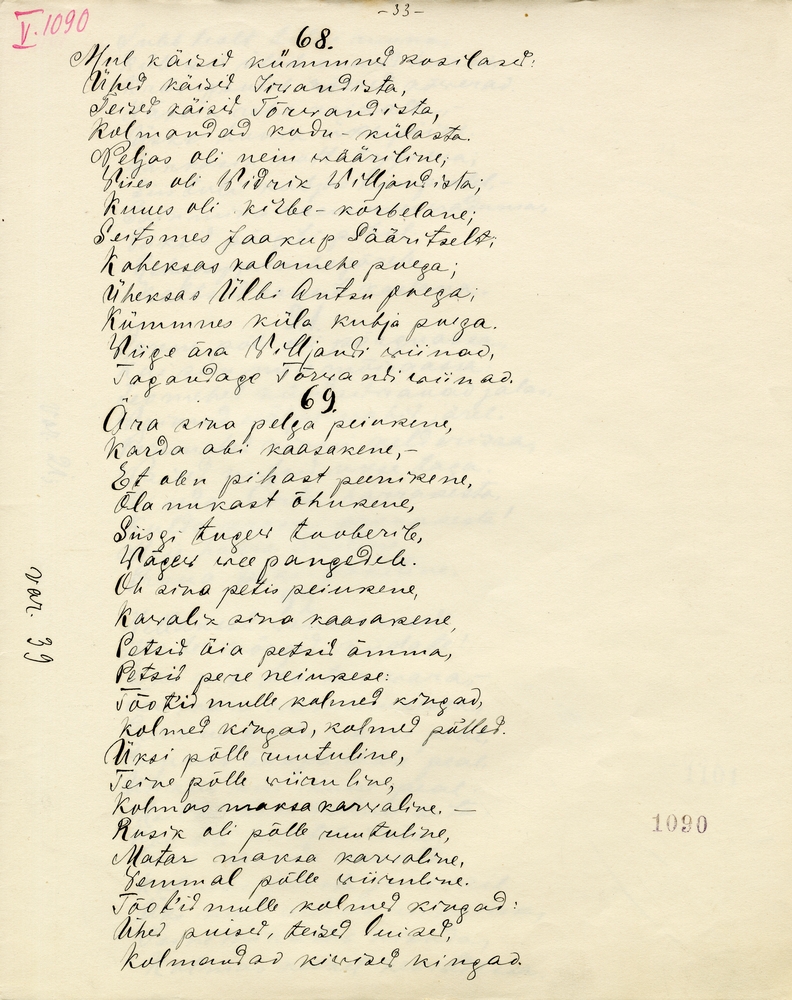 V.1090
-33-
68.
Mul käisid kümmned kosilased:
Ühed käised Irwandista,
Teised käisid Tõrwandista,
Kolmandad kodu-külasta.
Neljas oli nein wääriline;
Wiies oli Widrik Willjandista;
Kuues oli kirbe-kõrbelane;
Seitsmes Jaakup Sääritselt;
Kaheksas kalamehe puega;
Üheksas Ülbi Antsu puega;
Kümmnes küla kubja puega.
Wiige ära Willjandi wiinad,
Tagandage Tõrwandi wiinad.
69.
Ära sina pelga peiukene,
Karda abi kaasakene,-
Et olen pihast peenikene,
Õla nukast õhukene,
Siisgi tugew tooberile,
Wägew wee pangedele.
Oh sina petis peiukene,
Kawalik sina kaasakene,
Petsid äia petsid ämma,
Petsid pere neiukese:
Tõotid mulle kolmed kingad,
Kolmed kingad, kolmed põlled.
Üksi põlle ruutuline,
Teine põlle wiiruline,
Kolmas maksakarwaline. —
Rusik oli põlle ruutuline,
Matar maksa karwaline,
Wemmal põlle wiiruline.
Tõotid mulle kolmed kingad:
Ühed puised, teised luised,
Kolmandad kiwised kingad.
var. 39
1090